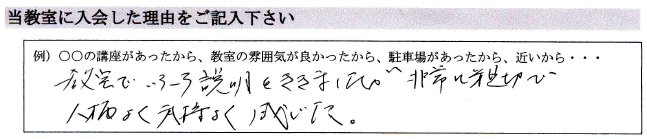 当教室に入会した理由をご記入下さい
例）〇〇の講座があったから、教室の雰囲気が良かったから、駐車場があったから、近いから・・・
教室でいろいろ説明をききましたが 非常に親切で
人柄よく気持よく感じた。